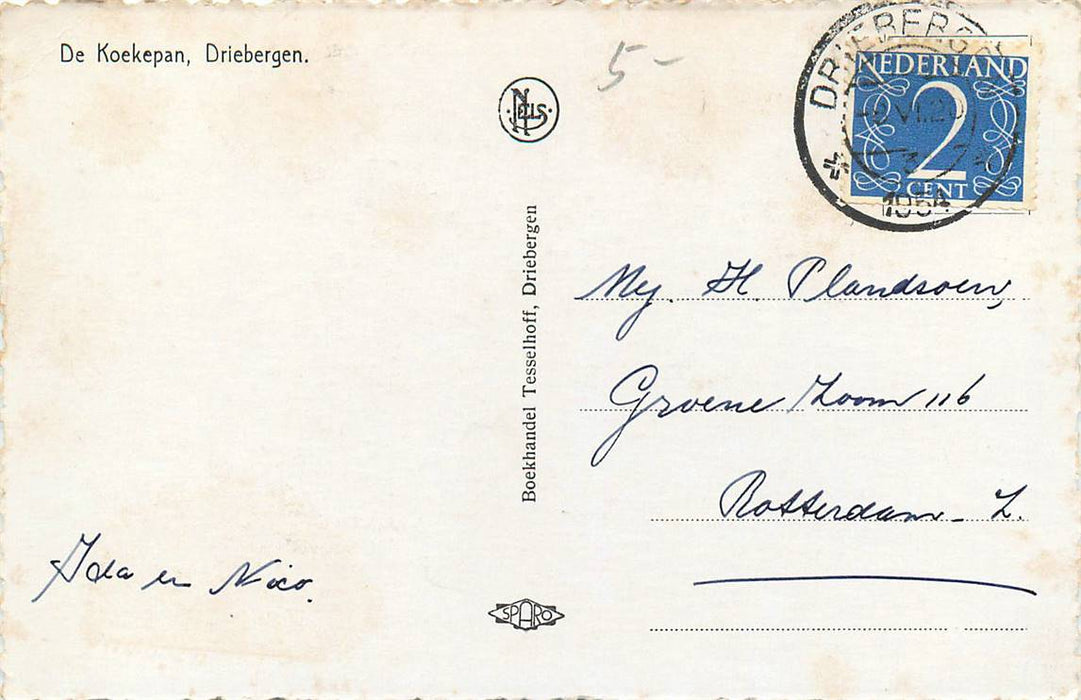 De Koekepan, Driebergen.
5-
NELS
DRIEBERGEN
VI.20
1954
NEDERLAND
2
CENT
Boekhandel Tesselhoff, Driebergen
Mej. H. Plandsoen,
Groene Zoom 116
Rotterdam - Z.
Ida en Nico.
SPARO